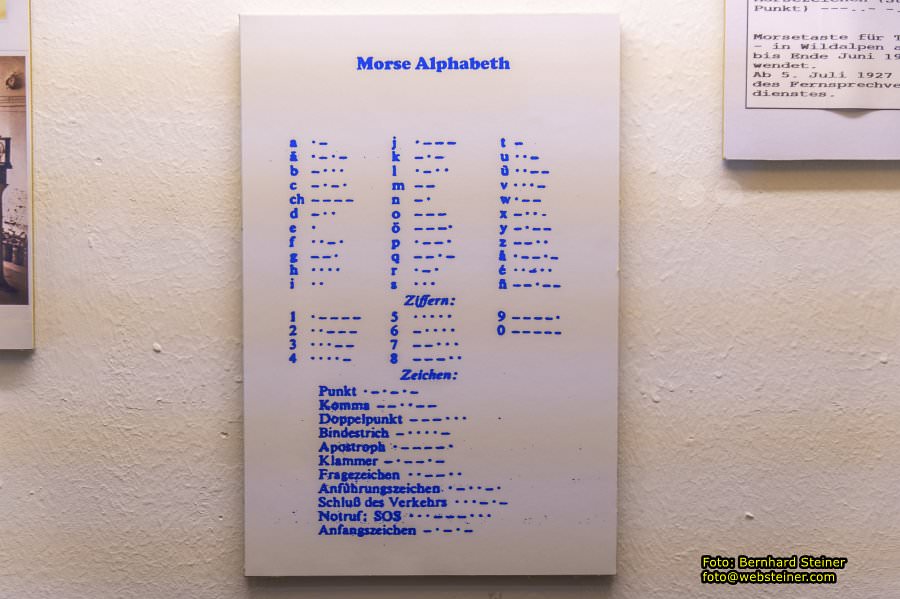 Morse Alphabeth
a ·– j ·––– t –
ä ·–·– k –·– u ··–
b –··· l ·–·· ü ··––
c –·–· m –– v ···–
ch –––– n –· w ·––
d –·· o ––– x –··–
e · ö –––· y –·––
f ··–· p ·––· z ––··
g ––· q ––·– å ·––·–
h ···· r ·–· é ··–··
i ·· s ··· ñ ––·––
Ziffern:
1 ·–––– 5 ····· 9 ––––·
2 ··––– 6 –···· 0 –––––
3 ···–– 7 ––···
4 ····– 8 –––··
Zeichen:
Punkt ·–·–·–
Komma ––··––
Doppelpunkt –––···
Bindestrich –····–
Apostroph ·––––·
Klammer –·––·–
Fragezeichen ··––··
Anführungszeichen ·–··–·
Schluß des Verkehrs ···–·–
Notruf: SOS ···–––···
Anfangszeichen –·–·–
Punkt) ---..- -.
Morsetaste für T
- in Wildalpen a
bis Ende Juni 19
wendet.
Ab 5. Juli 1927
des Fernsprechve
dienstes.
Foto: Bernhard Steiner
foto@websteiner.com